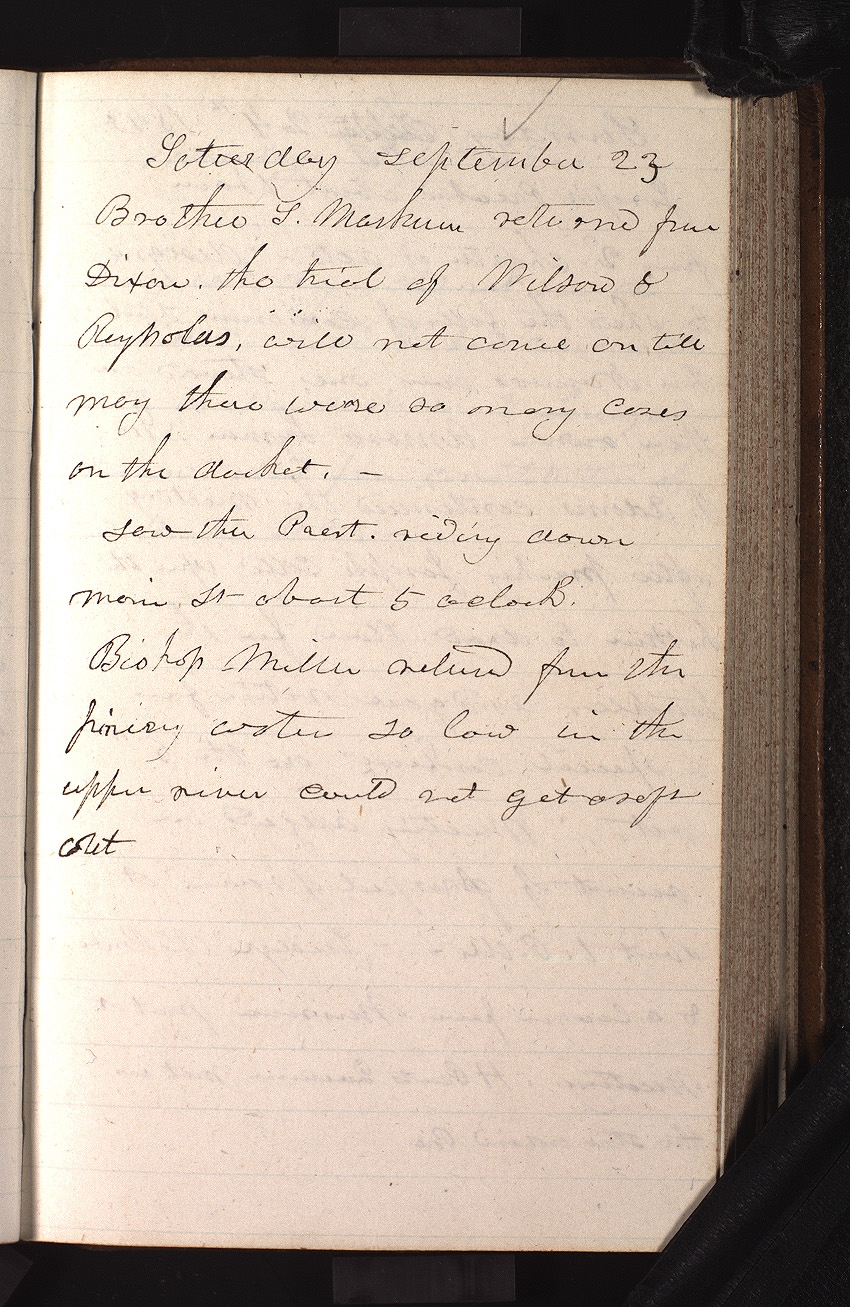 Saturday September 23
Brother S. Markum returnd from
Dixon. the trial of Wilson &
Reynolds, will not come on till
may there were so many cases
on the docket. —
saw the Prest. riding down
main St about 5 oclock.
Bishop Miller returd from the
pinery water so low in the
upper river could not get a raft
out